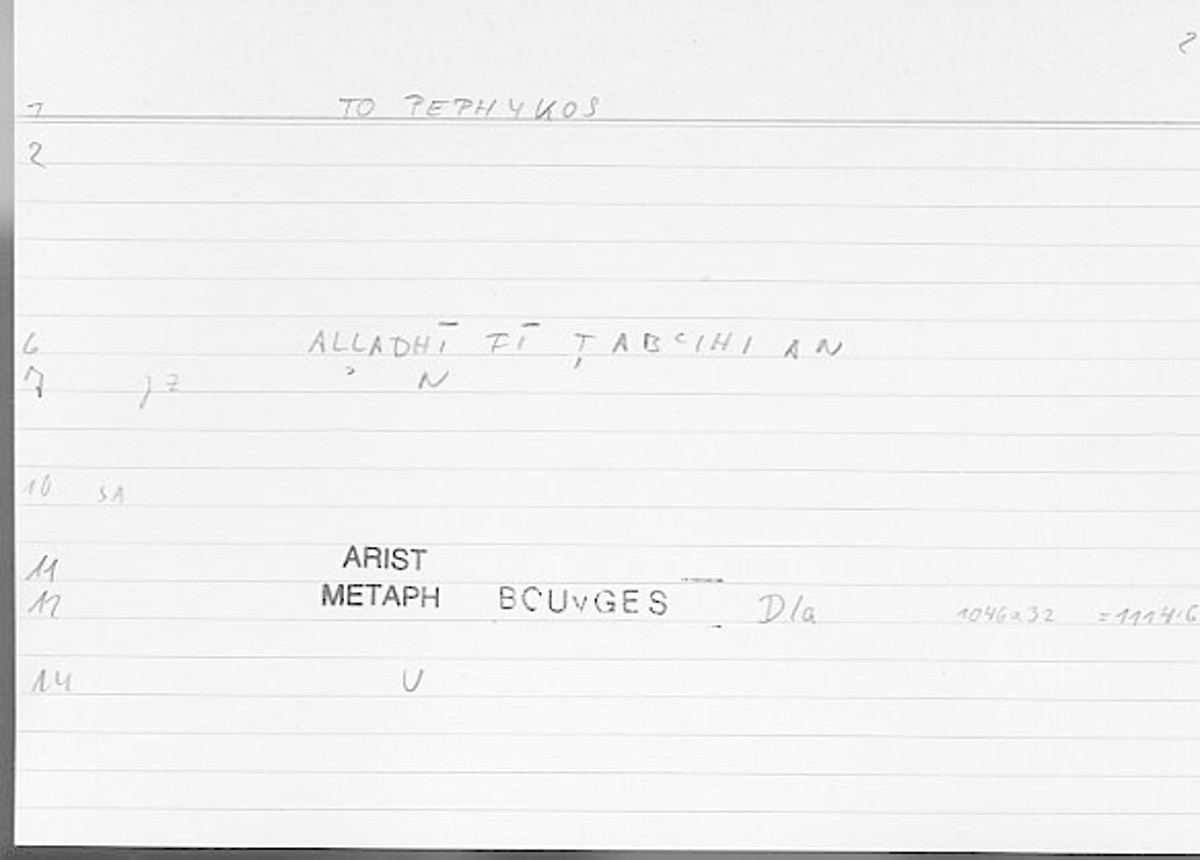 2
1 TO PEPHYKOS
2
6 ALLADHĪ FĪ ṬABCIHI AN
7 jz > N
10 SA
11 ARIST
12 METAPH BOUYGES D/a 1046a32 =1114.6
14 U